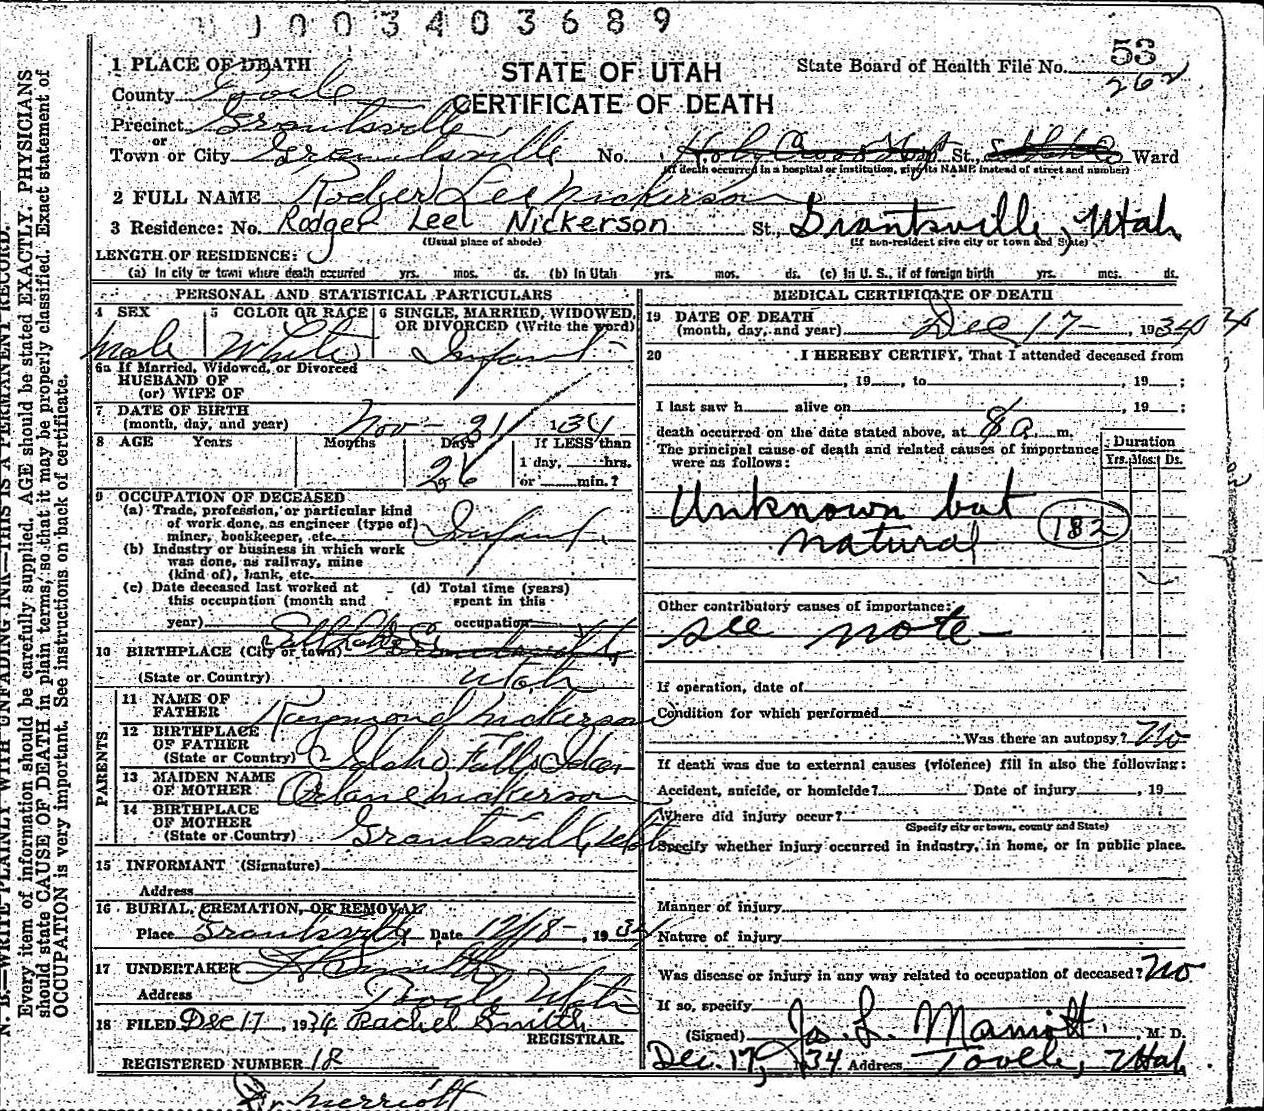 0003403689
53
262
STATE OF UTAH
CERTIFICATE OF DEATH
State Board of Health File No.
1 PLACE OF DEATH
County Tooele
Precinct Grantsville
or
Town or City Grantsville No. Holy Cross Hosp St., Salt Lake Ward
(If death occurred in a hospital or institution, give its NAME instead of street and number)
2 FULL NAME Rodger Lee Nickerson
3 Residence: No. Rodger Lee Nickerson St., Grantsville, Utah
(Usual place of abode) (If non-resident give city or town and State)
LENGTH OF RESIDENCE:
(a) In city or town where death occurred yrs. mos. ds. (b) In Utah yrs. mos. ds. (c) In U. S., if of foreign birth yrs. mos. ds.
PERSONAL AND STATISTICAL PARTICULARS
4 SEX Male
5 COLOR OR RACE White
6 SINGLE, MARRIED, WIDOWED, OR DIVORCED (Write the word) Infant
6a If Married, Widowed, or Divorced
HUSBAND OF
(or) WIFE OF
7 DATE OF BIRTH
(month, day, and year) Nov - 21 1934
8 AGE Years Months Days If LESS than
26 1 day, hrs.
or min.?
9 OCCUPATION OF DECEASED
(a) Trade, profession, or particular kind
of work done, as engineer (type of)
miner, bookkeeper, etc. Infant
(b) Industry or business in which work
was done, as railway, mine
(kind of), bank, etc.
(c) Date deceased last worked at (d) Total time (years)
this occupation (month and spent in this
year) occupation
10 BIRTHPLACE (City or town) Salt Lake City
(State or Country) Utah
PARENTS
11 NAME OF
FATHER Raymond Nickerson
12 BIRTHPLACE
OF FATHER
(State or Country) Idaho Falls Idaho
13 MAIDEN NAME
OF MOTHER Nickerson
14 BIRTHPLACE
OF MOTHER
(State or Country) Grantsville Utah
15 INFORMANT (Signature)
Address
16 BURIAL, CREMATION, OR REMOVAL
Place Grantsville Date 12/18-, 1934
17 UNDERTAKER
Address Tooele Utah
18 FILED Dec 17, 1934 Rachel Smith
REGISTRAR.
REGISTERED NUMBER 18
Dr. Merriott
MEDICAL CERTIFICATE OF DEATH
19 DATE OF DEATH
(month, day, and year) Dec 17-, 1934
20 I HEREBY CERTIFY, That I attended deceased from
, 19 , to , 19 ;
I last saw h alive on , 19 ;
death occurred on the date stated above, at 8 a. m.
The principal cause of death and related causes of importance
were as follows:
Duration
Yrs. Mos. Ds.
Unknown but
natural 182
Other contributory causes of importance:
see note
If operation, date of
Condition for which performed
Was there an autopsy? No
If death was due to external causes (violence) fill in also the following:
Accident, suicide, or homicide? Date of injury , 19
Where did injury occur?
(Specify city or town, county and State)
Specify whether injury occurred in industry, in home, or in public place.
Manner of injury
Nature of injury
Was disease or injury in any way related to occupation of deceased? No.
If so, specify
(Signed) Jos. L. Marriott. M. D.
Dec. 17, 1934 Address Tooele, Utah.
N. B.—WRITE PLAINLY WITH UNFADING INK—THIS IS A PERMANENT RECORD.
Every item of information should be carefully supplied. AGE should be stated EXACTLY. PHYSICIANS
should state CAUSE OF DEATH in plain terms, so that it may be properly classified. Exact statement of
OCCUPATION is very important. See instructions on back of certificate.